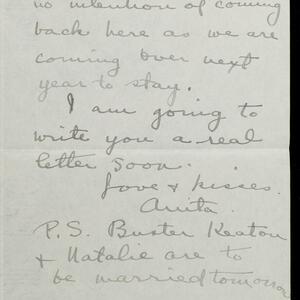 no intention of coming
back here as we are
coming over next
year to stay.
I am going to
write you a real
letter soon.
Love & kisses.
Anita.
P.S. Buster Keaton
& Natalie are to
be married tomorrow